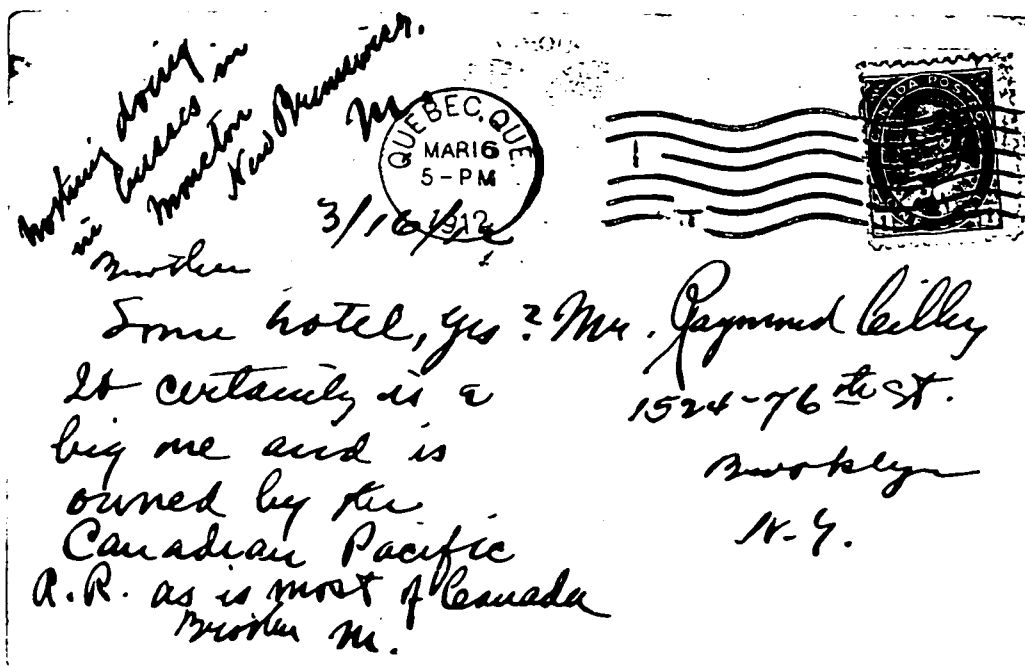 Nothing doing
in busses in
Moncton
New Brunswick.
M.
QUEBEC, QUE.
MAR 16
5-PM
1912
CANADA POSTAGE
3/16/12
Brother
Some hotel, yes?
It certainly is a
big one and is
owned by the
Canadian Pacific
R.R. as is most of Canada
Brother M.
Mr. Raymond Cilley
1524-76th St.
Brooklyn
N.Y.